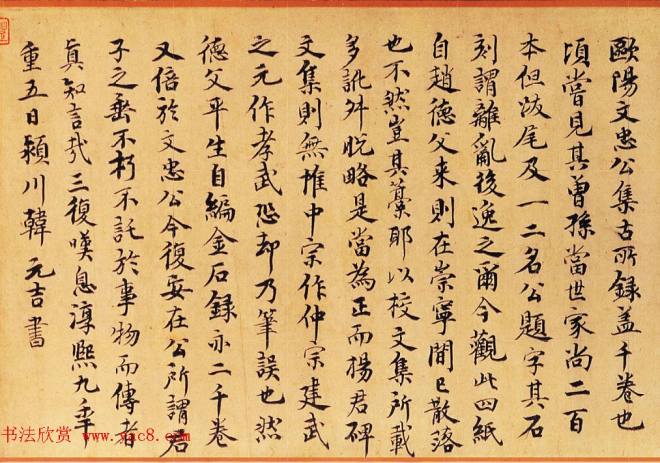 歐陽文忠公集古所錄蓋千卷也
頃嘗見其曾孫當世家尚二百
本但跋尾及一二名公題字其石
刻謂離亂後逸之爾今觀此四紙
自趙德父來則在崇寧間已散落
也不然豈其藁耶以校文集所載
多訛舛脫略是當為正而楊君碑
文集則無惟中宗作仲宗建武
之元作孝武恐却乃筆誤也然
德父平生自編金石錄亦二千卷
又倍於文忠公今復安在公所謂君
子之垂不朽不託於事物而傳者
真知言哉三復嘆息淳熙九年
重五日潁川韓元吉書
书法欣赏 www.yac8.com